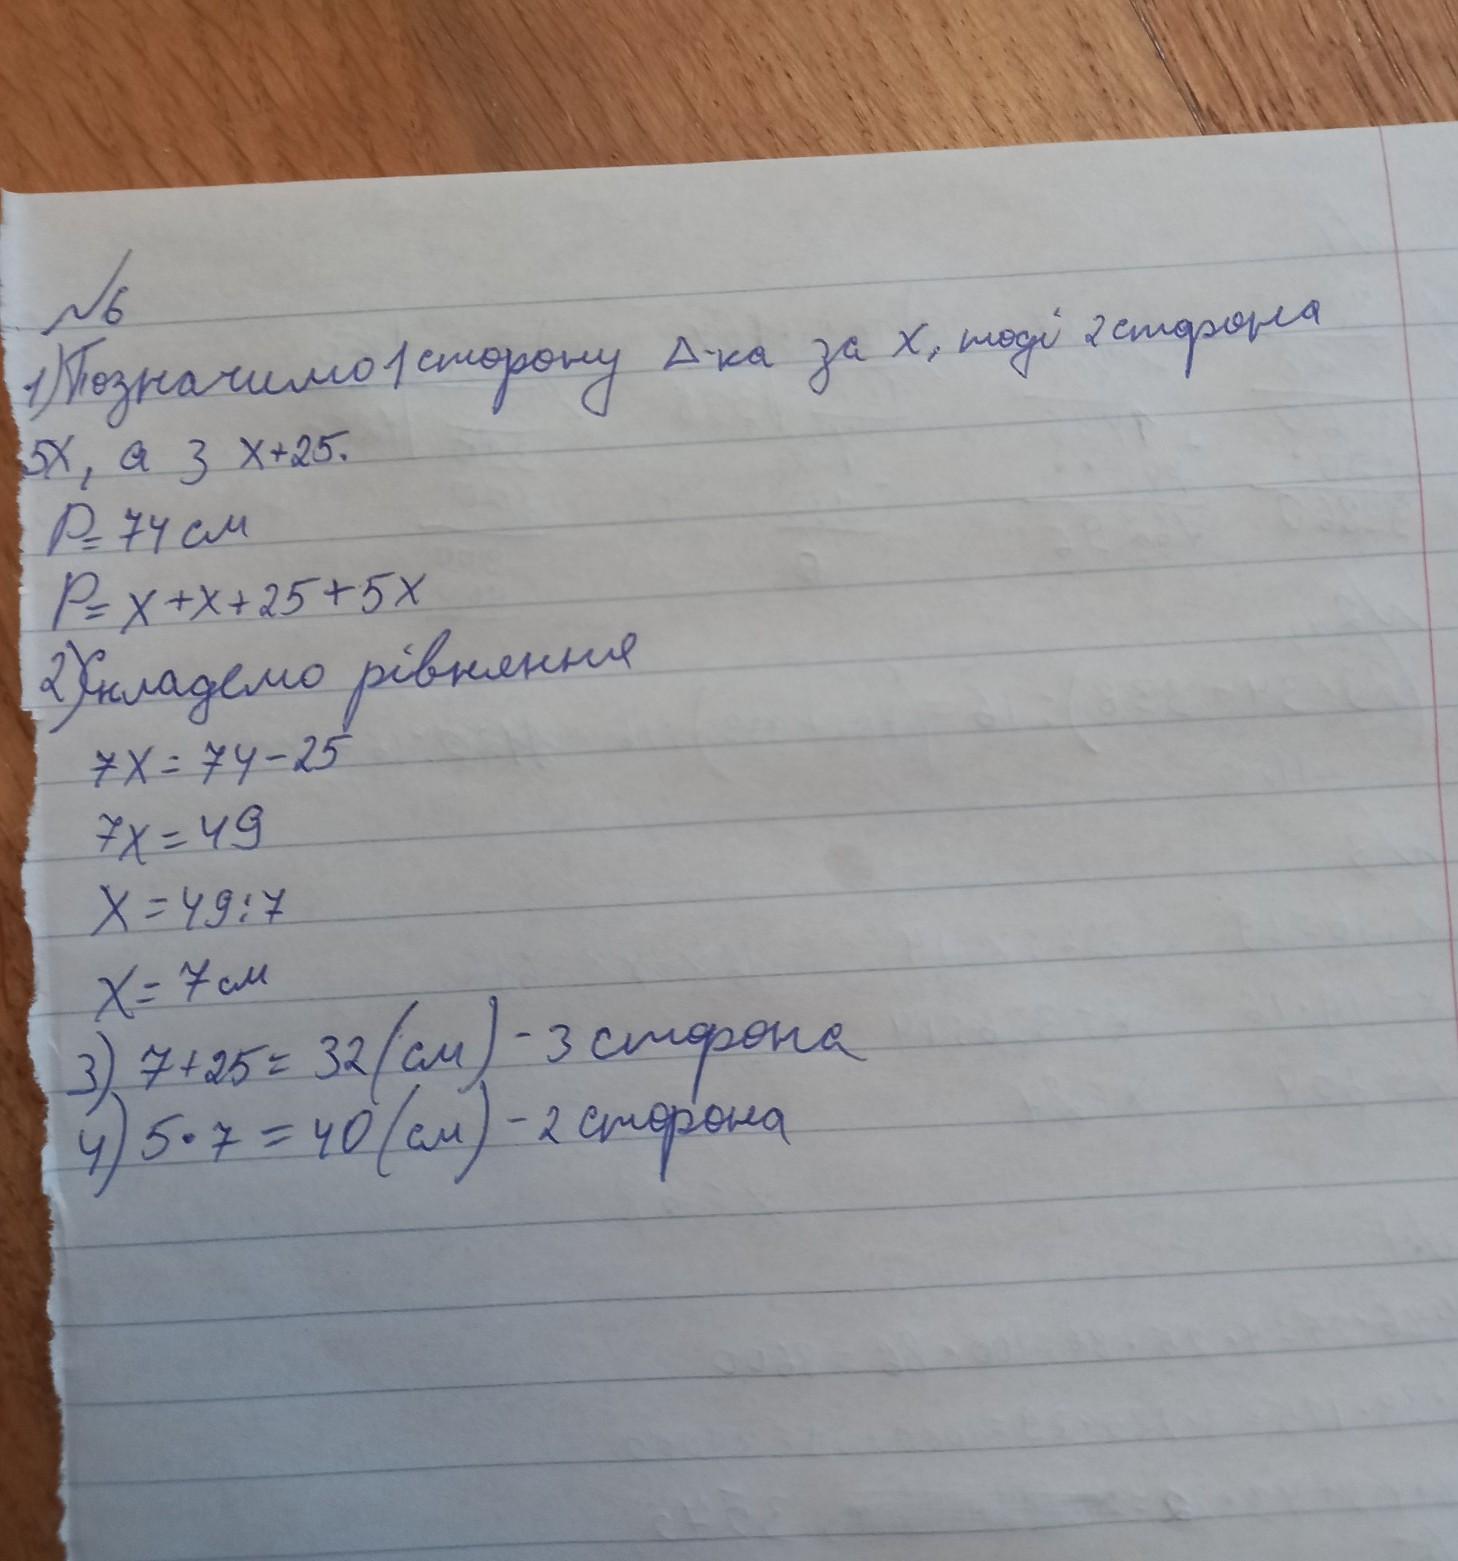 №6
1) Позначимо 1 сторону Δ-ка за х, тоді 2 сторона
5х, а 3 х+25.
Р= 74 см
Р= х+х+25+5х
2) Складемо рівняння
7х=74-25
7х=49
х=49:7
х=7см
3) 7+25=32(см)-3 сторона
4) 5•7=40(см)-2 сторона